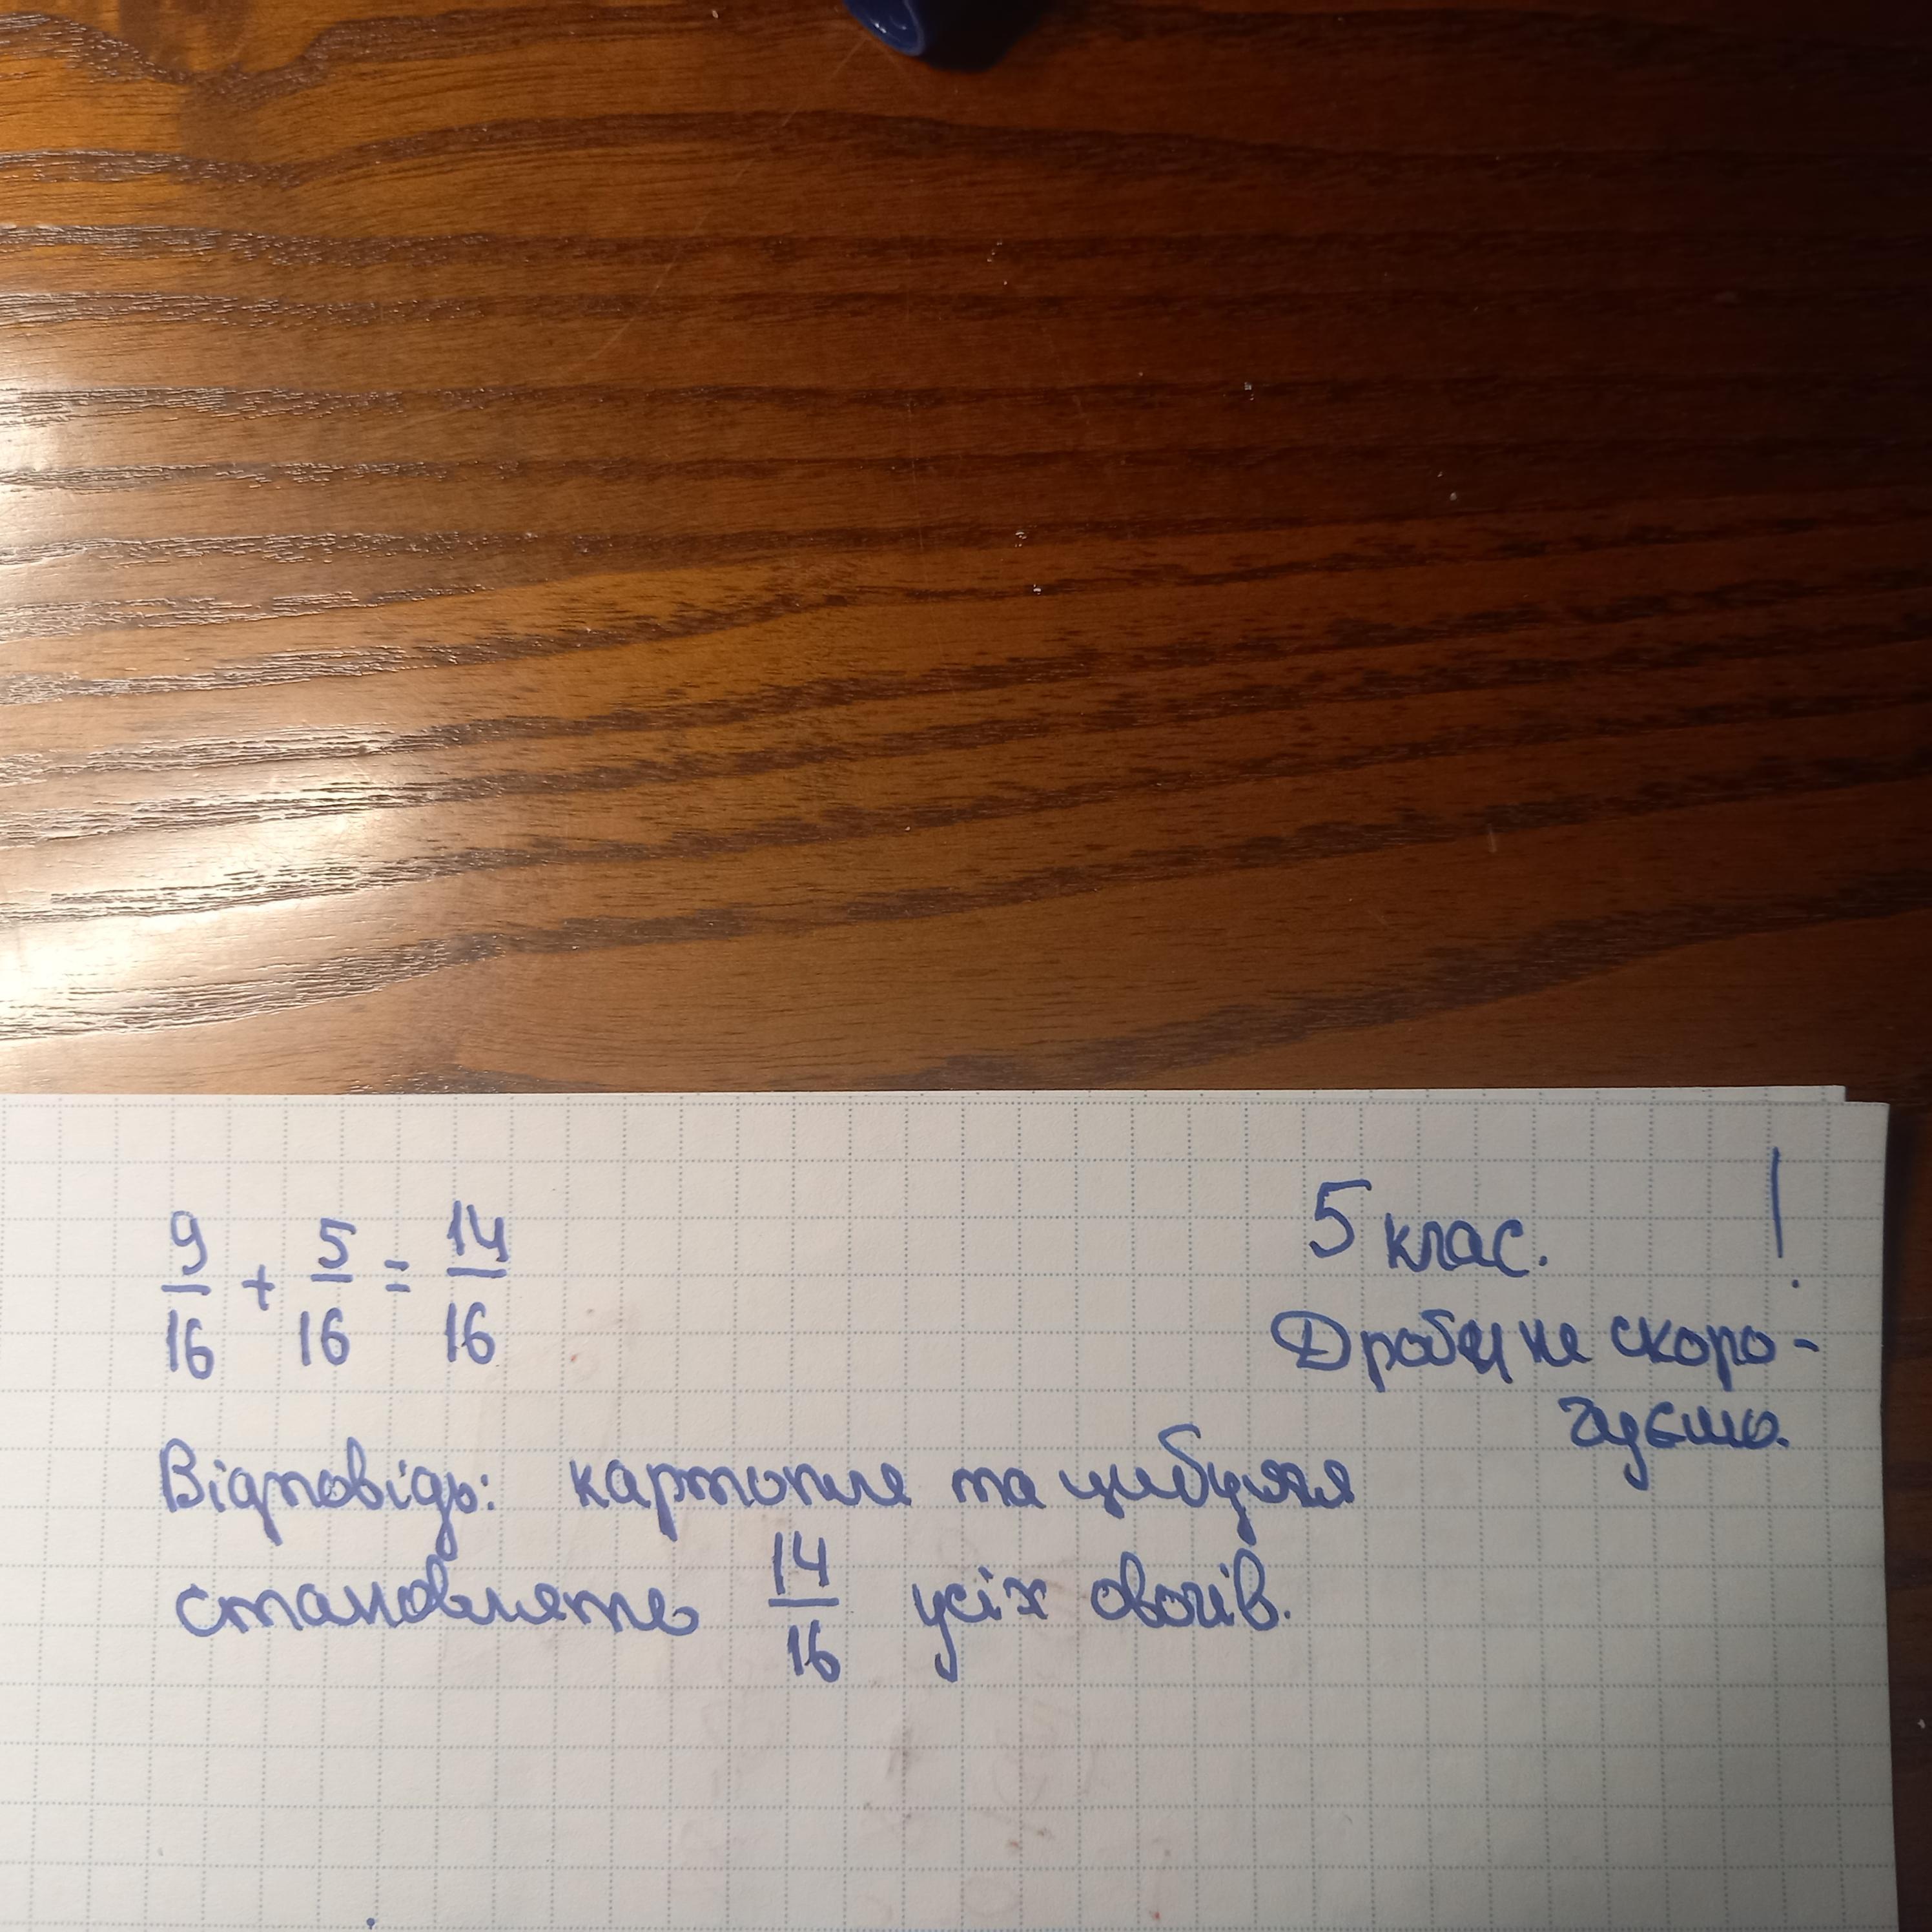 9/16 + 5/16 = 14/16
5 клас. !
Дроби не скоро-
чуємо.
Відповідь: картопля та цибуля
становлять 14/16 усіх овочів.